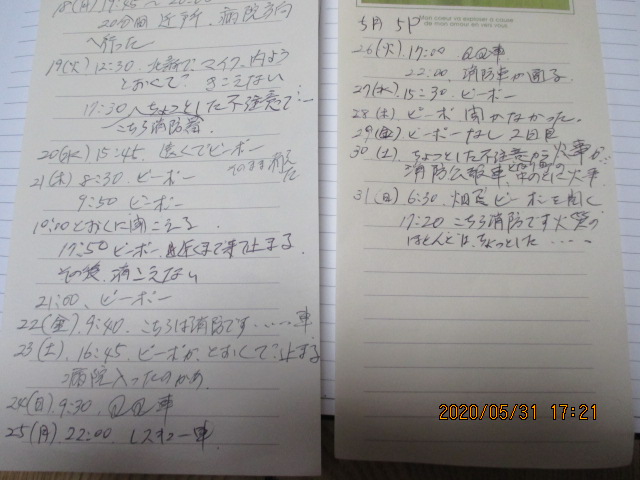 18(月) 19:45 ~ 20:00
20分間 近所 病院方向
へ行った
19(火) 12:30. 北新でマイク.内よう
とおくて? きこえない
17:30 へちょっとした不注意で…
こちら消防署.
20(水) 15:45. 遠くでピーポー
21(木) 8:30. ピーポー そのまま消えた
9:50 ピーポー
10:00 とおくに聞こえる
17:50 ピーポー 近くまで来て止まる
その後. 聞こえない
21:00. ピーポー
22(金). 9:40. こちらは消防です.....車.
23(土). 16:45. ピーポが とおくで?止まる
病院入ったのかな
24(日) 9:30.
25(月). 22:00. レスキュー車.
Mon coeur va exploser à cause
de mon amour en vers vous
5月 5P
26(火). 17:00 車
22:00. 消防車が通る.
27(水) 15:30 ピーポー
28(木) ピーポ 聞かなかった.
29(金) ピーポーなし 2回目
30(土). ちょっとした不注意から火事が…
消防広報車 火事.
31(日) 6:30. ピーポーを聞く
17:20 こちら消防です火災の
ほとんどは、ちょっとした.....
2020/05/31 17:21